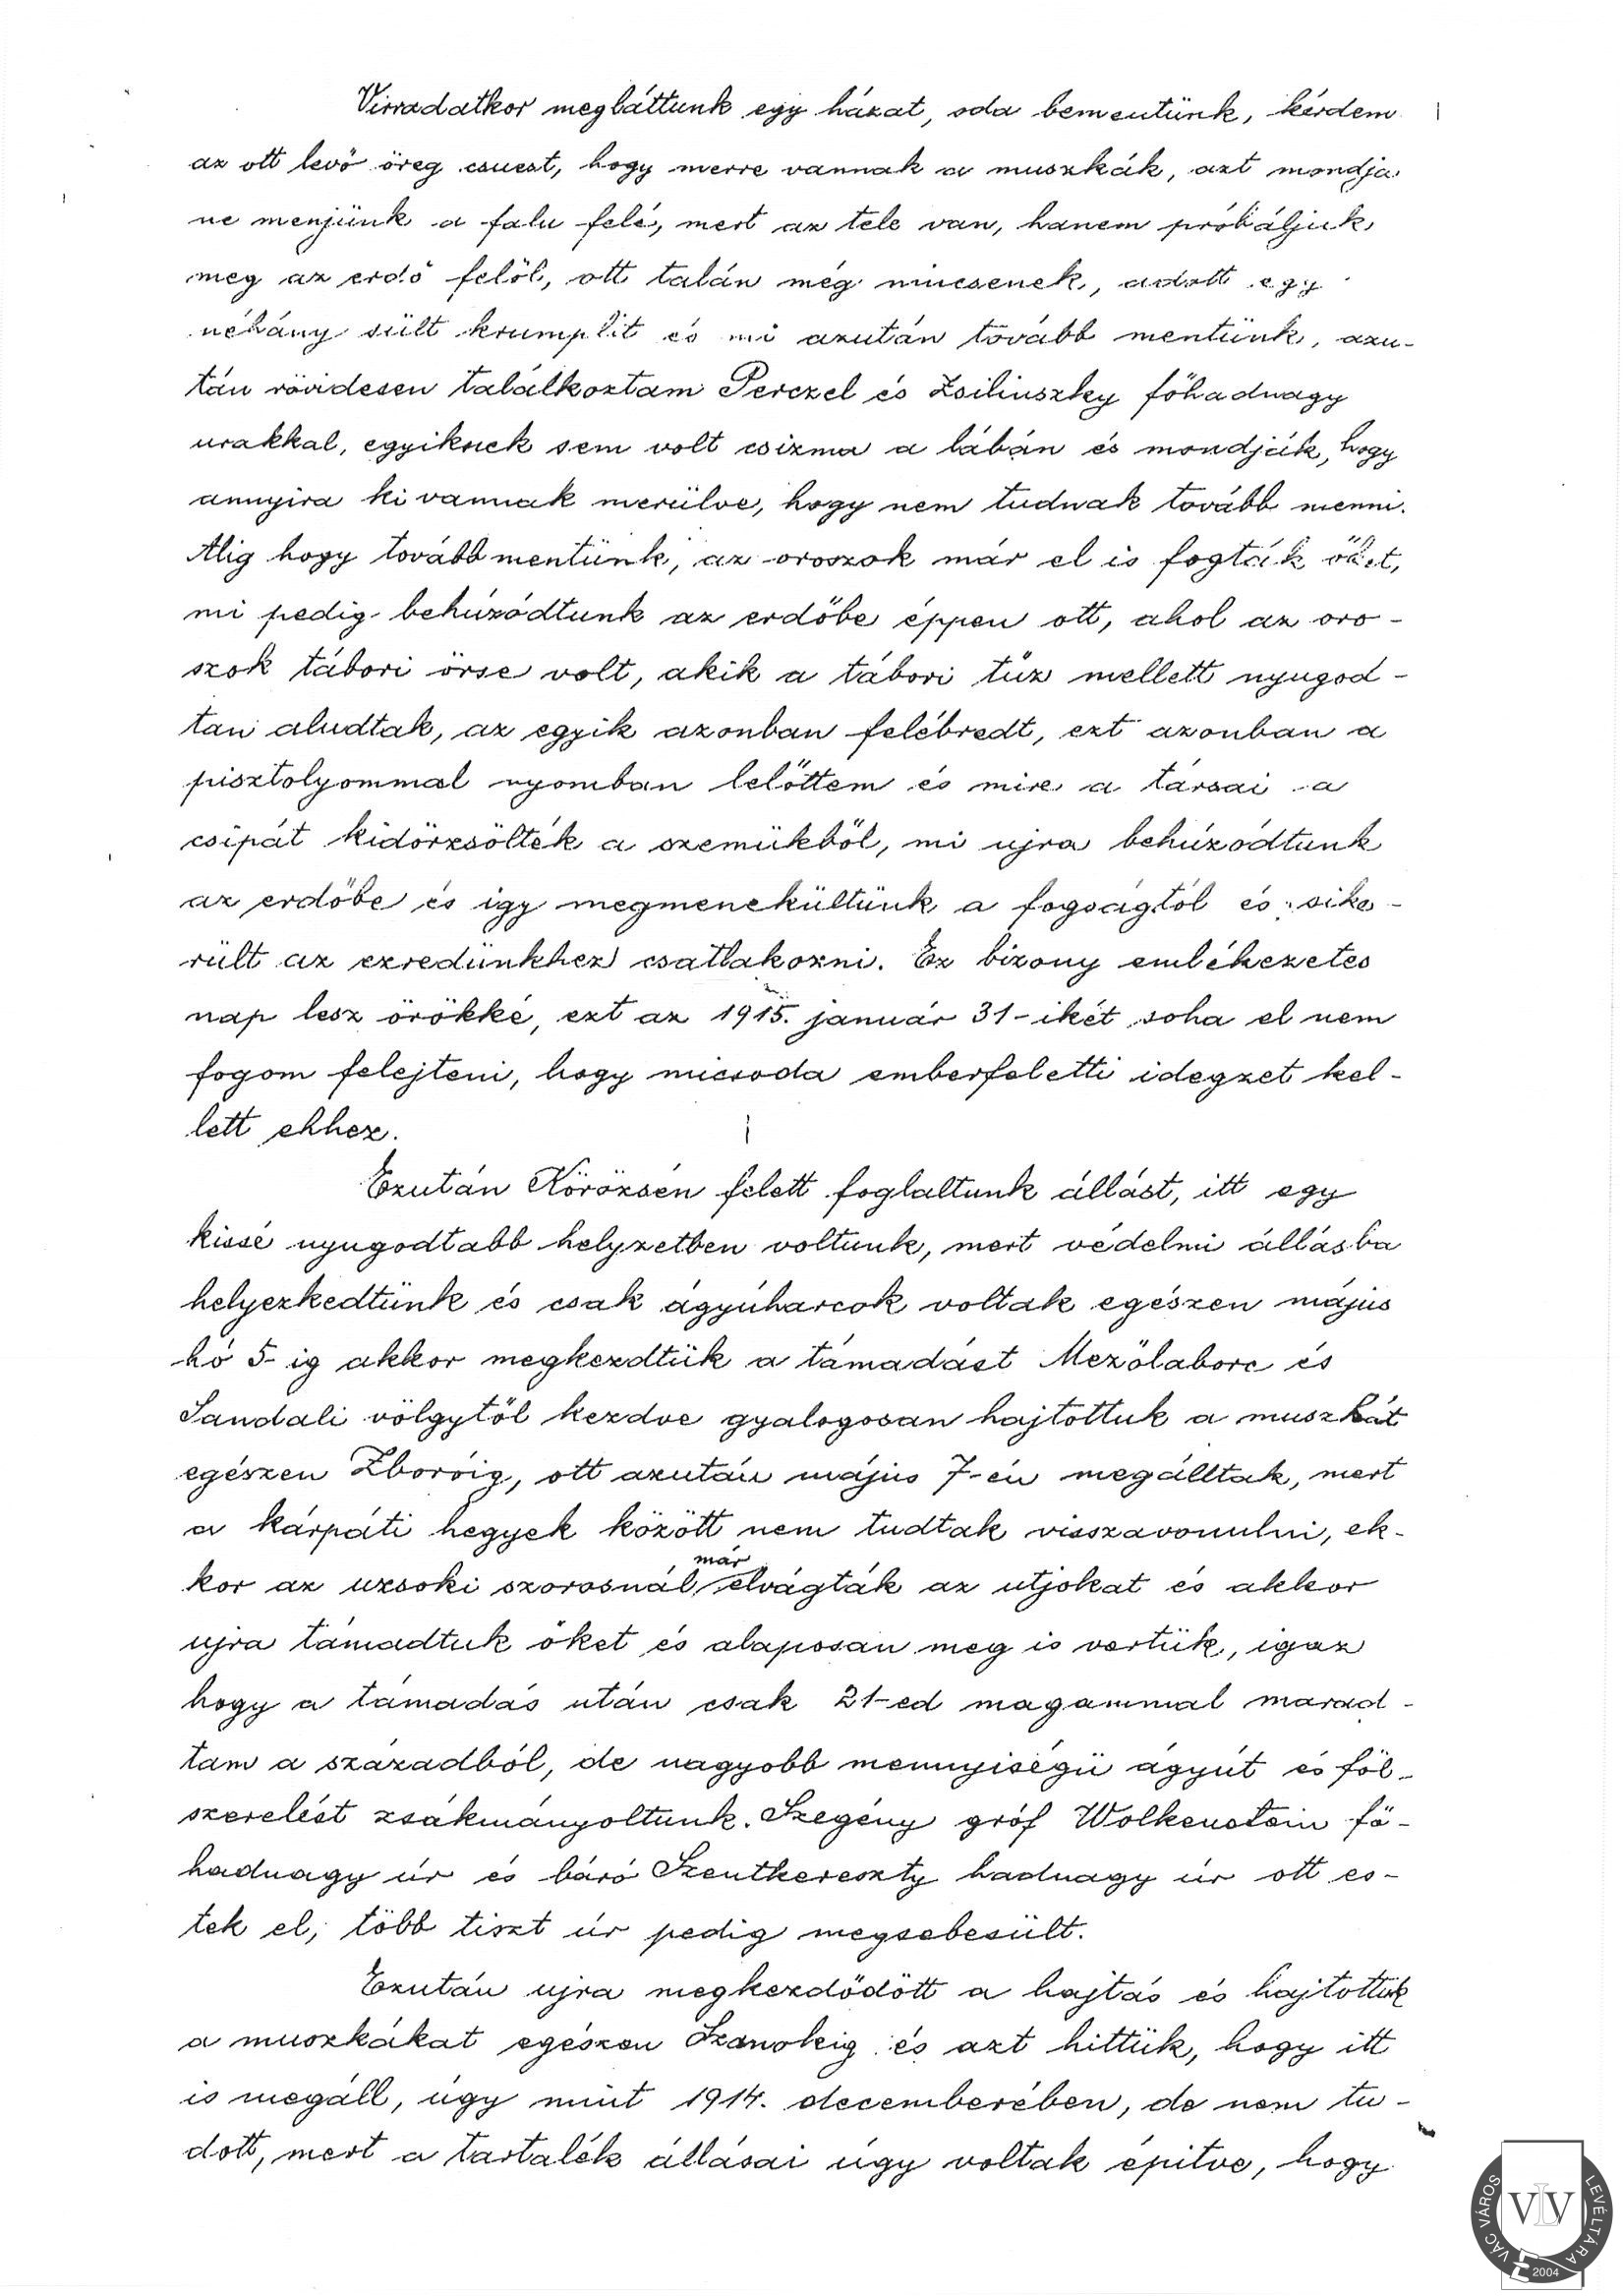 Virradatkor megláttunk egy házat, oda bementünk, kérdem
az ott levő öreg csuest, hogy merre vannak a muszkák, azt mondja
ne menjünk a falu felé, mert az tele van, hanem próbáljuk
meg az erdő felől, ott talán még nincsenek, adott egy
néhány sült krumplit és mi azután tovább mentünk, azu-
tán rövidesen találkoztam Perczel és Zsilinszky főhadnagy
urakkal, egyiknek sem volt csizma a lábán és mondják, hogy
annyira ki vannak merülve, hogy nem tudnak tovább menni.
Alig hogy tovább mentünk, az oroszok már el is fogták őket,
mi pedig behúzódtunk az erdőbe éppen ott, ahol az oro-
szok tábori őrse volt, akik a tábori tűz mellett nyugod-
tan aludtak, az egyik azonban felébredt, ezt azonban a
pisztolyommal nyomban lelőttem és mire a társai a
csipát kidörzsölték a szemükből, mi ujra behúzódtunk
az erdőbe és igy megmenekültünk a fogságtól és sike-
rült az ezredünkhez csatlakozni. Ez bizony emlékezetes
nap lesz örökké, ezt az 1915. január 31-ikét soha el nem
fogom felejteni, hogy micsoda emberfeletti idegzet kel-
lett ehhez.
Ezután Körözsén felett foglaltunk állást, itt egy
kissé nyugodtabb helyzetben voltunk, mert védelmi állásba
helyezkedtünk és csak ágyúharcok voltak egészen május
hó 5-ig akkor megkezdtük a támadást Mezőlaborc és
Sandali völgytől kezdve gyalogosan hajtottuk a muszkát
egészen Zboróig, ott azután május 7-én megálltak, mert
a kárpáti hegyek között nem tudtak visszavonulni, ek-
kor az uzsoki szorosnál már elvágták az utjokat és akkor
ujra támadtuk őket és alaposan meg is vertük, igaz
hogy a támadás után csak 21-ed magammal marad-
tam a századból, de nagyobb mennyiségü ágyút és föl-
szerelést zsákmányoltunk. Szegény gróf Wolkenstein fő-
hadnagy úr és báró Szentkereszty hadnagy úr ott es-
tek el, több tiszt úr pedig megsebesült.
Ezután ujra megkezdődött a hajtás és hajtottuk
a muszkákat egészen Szanokig és azt hittük, hogy itt
is megáll, úgy mint 1914. decemberében, de nem tu-
dott, mert a tartalék állásai úgy voltak épitve, hogy
VÁC VÁROS LEVÉLTÁRA
VLV
2004